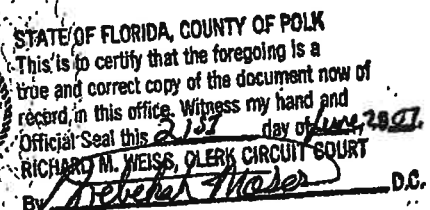 STATE OF FLORIDA, COUNTY OF POLK
This is to certify that the foregoing is a
true and correct copy of the document now of
record in this office. Witness my hand and
Official Seal this 21st day of June, 2007.
RICHARD M. WEISS, CLERK CIRCUIT COURT
By Debekah Moses D.C.